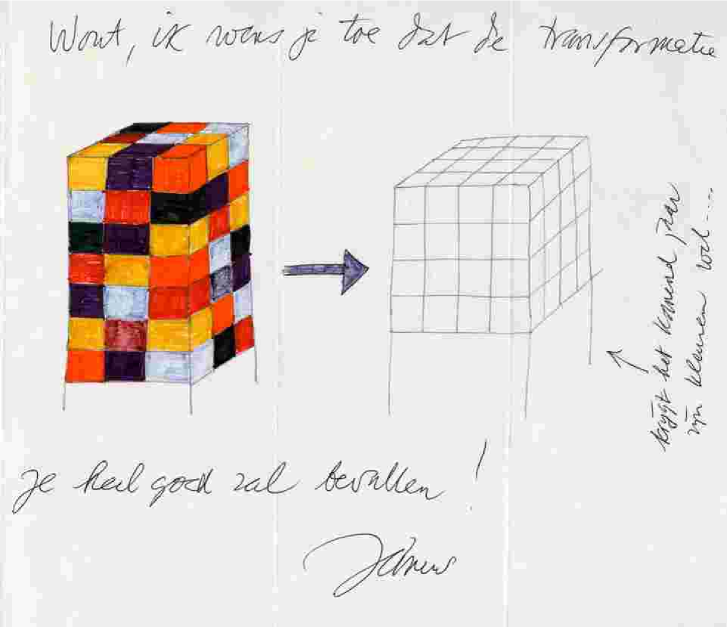 Wout, ik wens je toe dat de transformatie
krijgt het komend jaar
zijn kleuren wel ....
je heel goed zal bevallen !